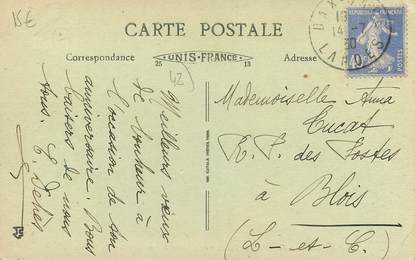 15€
CARTE POSTALE
Correspondance
UNIS-FRANCE
Adresse
25
13
42
DAX
LANDES
Meilleurs vœux
de bonheur à
l'occasion de son
anniversaire. Bons
baisers de nous
tous.
Mademoiselle Anna
Cucat
R. P. des Postes
à Blois
(L-et-C.)